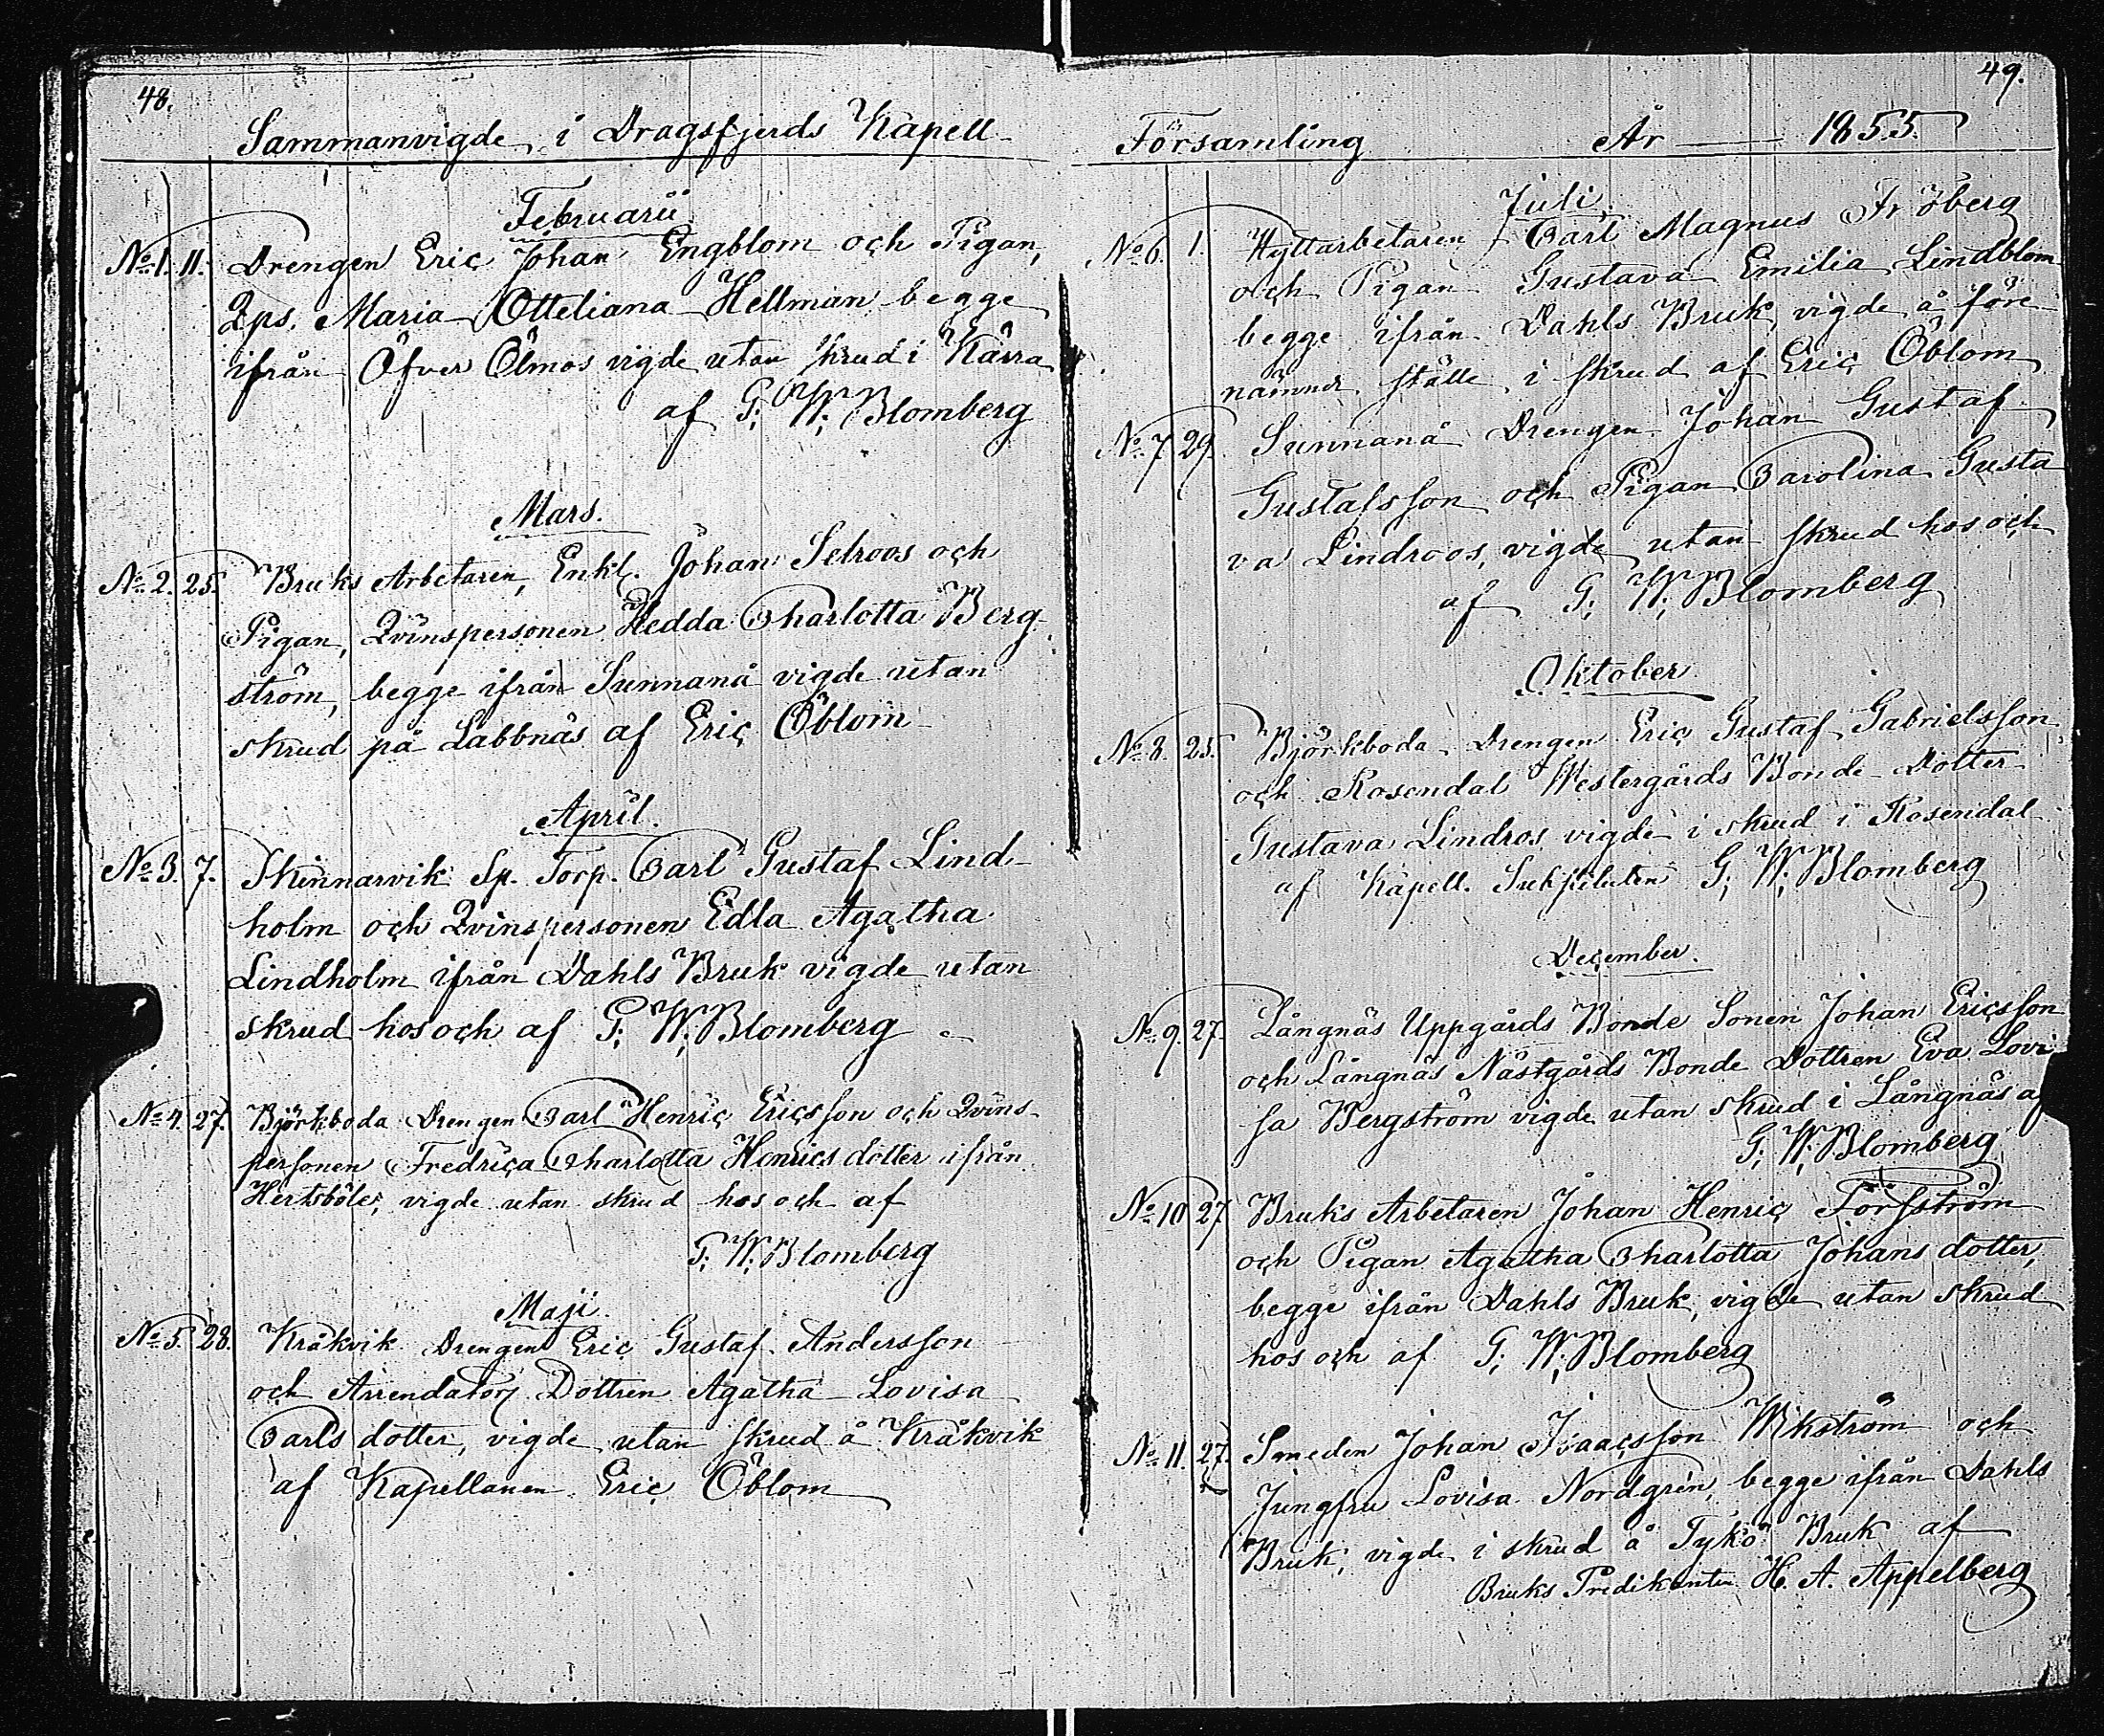 48.
Sammanvigde i Dragsfjerds Kapell
Februarii
No 1. 11. Drengen Eric Johan Engblom och Pigan,
Qps. Maria Otteliana Hellman begge
ifrån Öfver Ölmos vigde utan skrud i Kärra
af G. W. Blomberg
Mars.
No 2. 25. Bruks Arbetaren, Enkl. Johan Selroos och
Pigan, Qvinspersonen Hedda Charlotta Berg-
ström, begge ifrån Sunnanå vigde utan
skrud på Labbnäs af Eric Öblom
April.
No 3. 7. Skinnarvik Sp. Torp. Carl Gustaf Lind-
holm och Qvinspersonen Edla Agatha
Lindholm ifrån Dahls Bruk vigde utan
skrud hos och af G. W. Blomberg
No 4. 27. Björkboda Drengen Carl Henric Ericsson och Qvins-
personen Fredrica Charlotta Henrics dotter ifrån
Hertsböle, vigde utan skrud hos och af
G. W. Blomberg
Maji.
No 5. 28. Kråkvik Drengen Eric Gustaf Andersson
och Arrendators Dottren Agatha Lovisa
Carls dotter, vigde utan skrud å Kråkvik
af Kapellanen Eric Öblom
49.
Församling År 1855
Juli.
No 6. 1. Hyttarbetaren Carl Magnus Fröberg
och Pigan Gustava Emilia Lindblom
begge ifrån Dahls Bruk, vigde å före
nämnde ställe i skrud af Eric Öblom
No 7. 29. Sunnanå Drengen Johan Gustaf
Gustafsson och Pigan Carolina Gusta
va Lindroos, vigde utan skrud hos och
af G. W. Blomberg
Oktober
No 8. 25. Björkboda Drengen Eric Gustaf Gabrielsson
och Rosendal Westergårds Bonde Dotter
Gustava Lindros vigde i skrud i Rosendal
af Kapell. Substituten G. W. Blomberg
December.
No 9. 27. Långnäs Uppgårds Bonde Sonen Johan Ericsson
och Långnäs Nästgårds Bonde Dottren Eva Lovi
sa Bergström vigde utan skrud i Långnäs af
G. W. Blomberg
No 10 27 Bruks Arbetaren Johan Henric Forsström
och Pigan Agatha Charlotta Johans dotter,
begge ifrån Dahls Bruk, vigde utan skrud
hos och af G. W. Blomberg
No 11. 27. Smeden Johan Isaacsson Wikström och
Jungfru Lovisa Nordgrén, begge ifrån Dahls
Bruk, vigde i skrud å Tykö Bruk af
Bruks Predikanten H. A. Appelberg